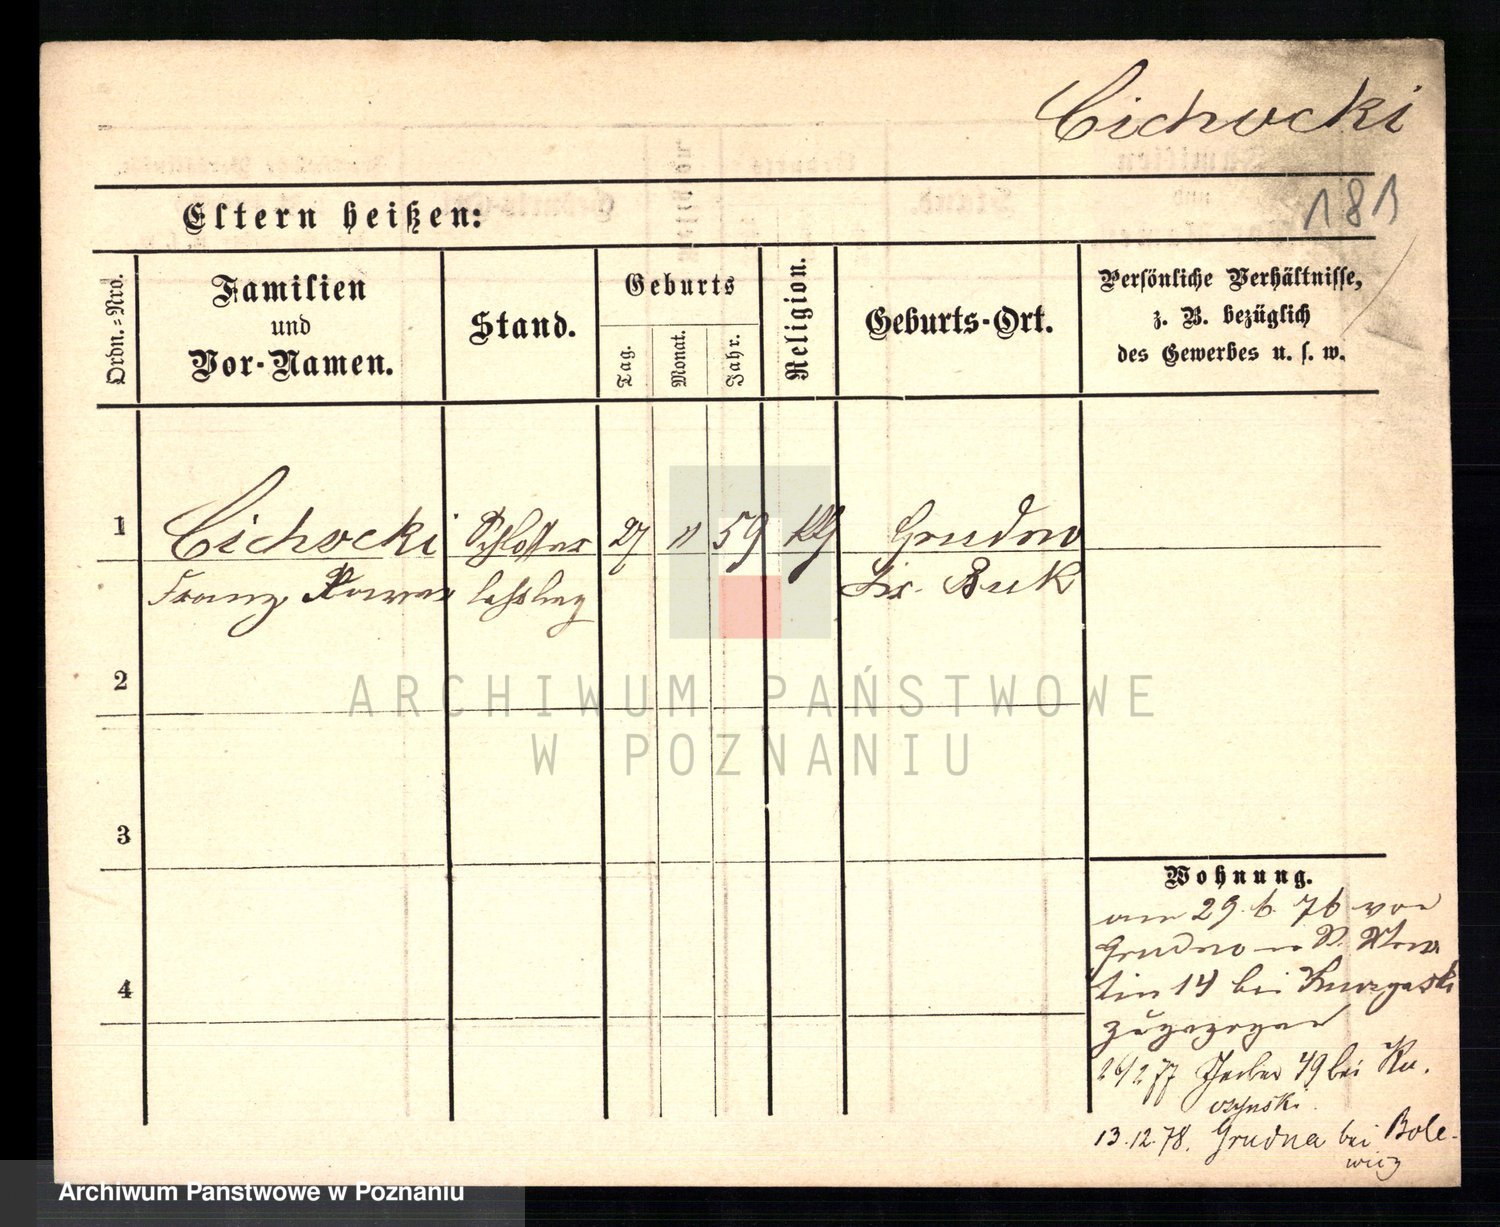 Cichocki
181
Eltern heißen:
Ordn.=Nro.
Familien
und
Vor-Namen.
Stand.
Geburts
Tag.
Monat.
Jahr.
Religion.
Geburts-Ort.
Persönliche Verhältnisse,
z. B. bezüglich
des Gewerbes u. s. w.
1
Cichocki Schlosser 27 11 59 Grudno
Franz Xawer lehrling Kr. Buk
2
3
4
Wohnung.
am 29. 6. 76 von
Grudno
tin 14 bei
zugezogen
26/2 77 49 bei Ku.
czynski.
13.12.78. Grudna bei Bole-
wicz
ARCHIWUM PAŃSTWOWE
W POZNANIU
Archiwum Panstwowe w Poznaniu